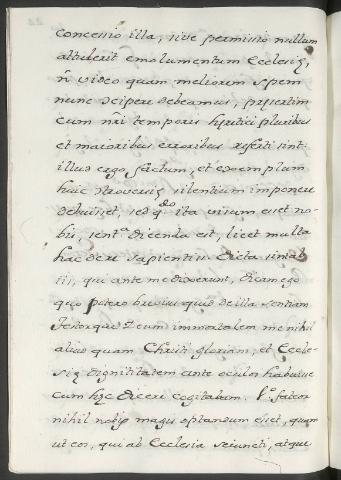 concessio illa, sive permissio nullum
attulerit emolumentum Ecclesię,
ñ video quam meliorem spem
nunc accipere debeamus, pręsertim
cum nr̃i temporis hęretici pluribus
et maioribus erroribus referti sint:
illud ergo factum, et exemplum
huic silentium imponere
debuisset, sed q̃do ita visum esset no-
bis, sentã dicenda est, licet multa
hac de re sapientius dicta sint ab
iis, qui ante me dixerunt, dicam ego
quo potero brevius quid de illa sentiam
Testorque Deum immortalem me nihil
aliud quam Christi gloriam, et Eccle-
się dignitatem ante oculos habuisse
cum hęc dicere cogitabam. P.º fateor
nihil nobis magis optandum esset, quam
ut eos, qui ab Ecclesia seiuncti, atque